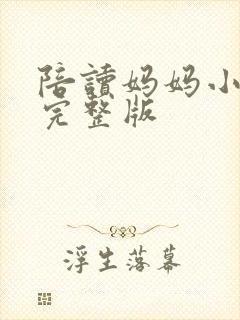 陪讀妈妈小
完整版
浮生落幕